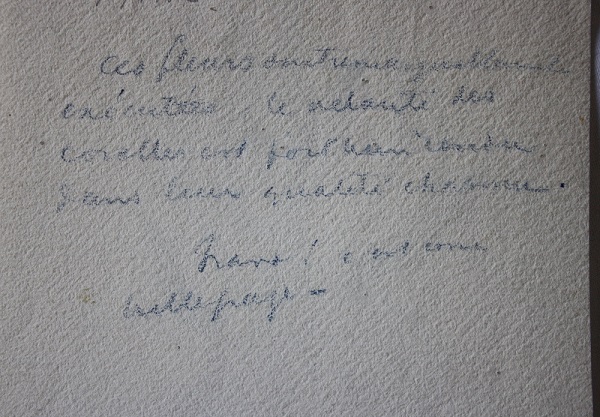 ces fleurs sont remarquablement
exécutées. le velouté des
corolles est fort bien rendu
dans leur qualité chacune.
Bravo ! c'est une
belle page -